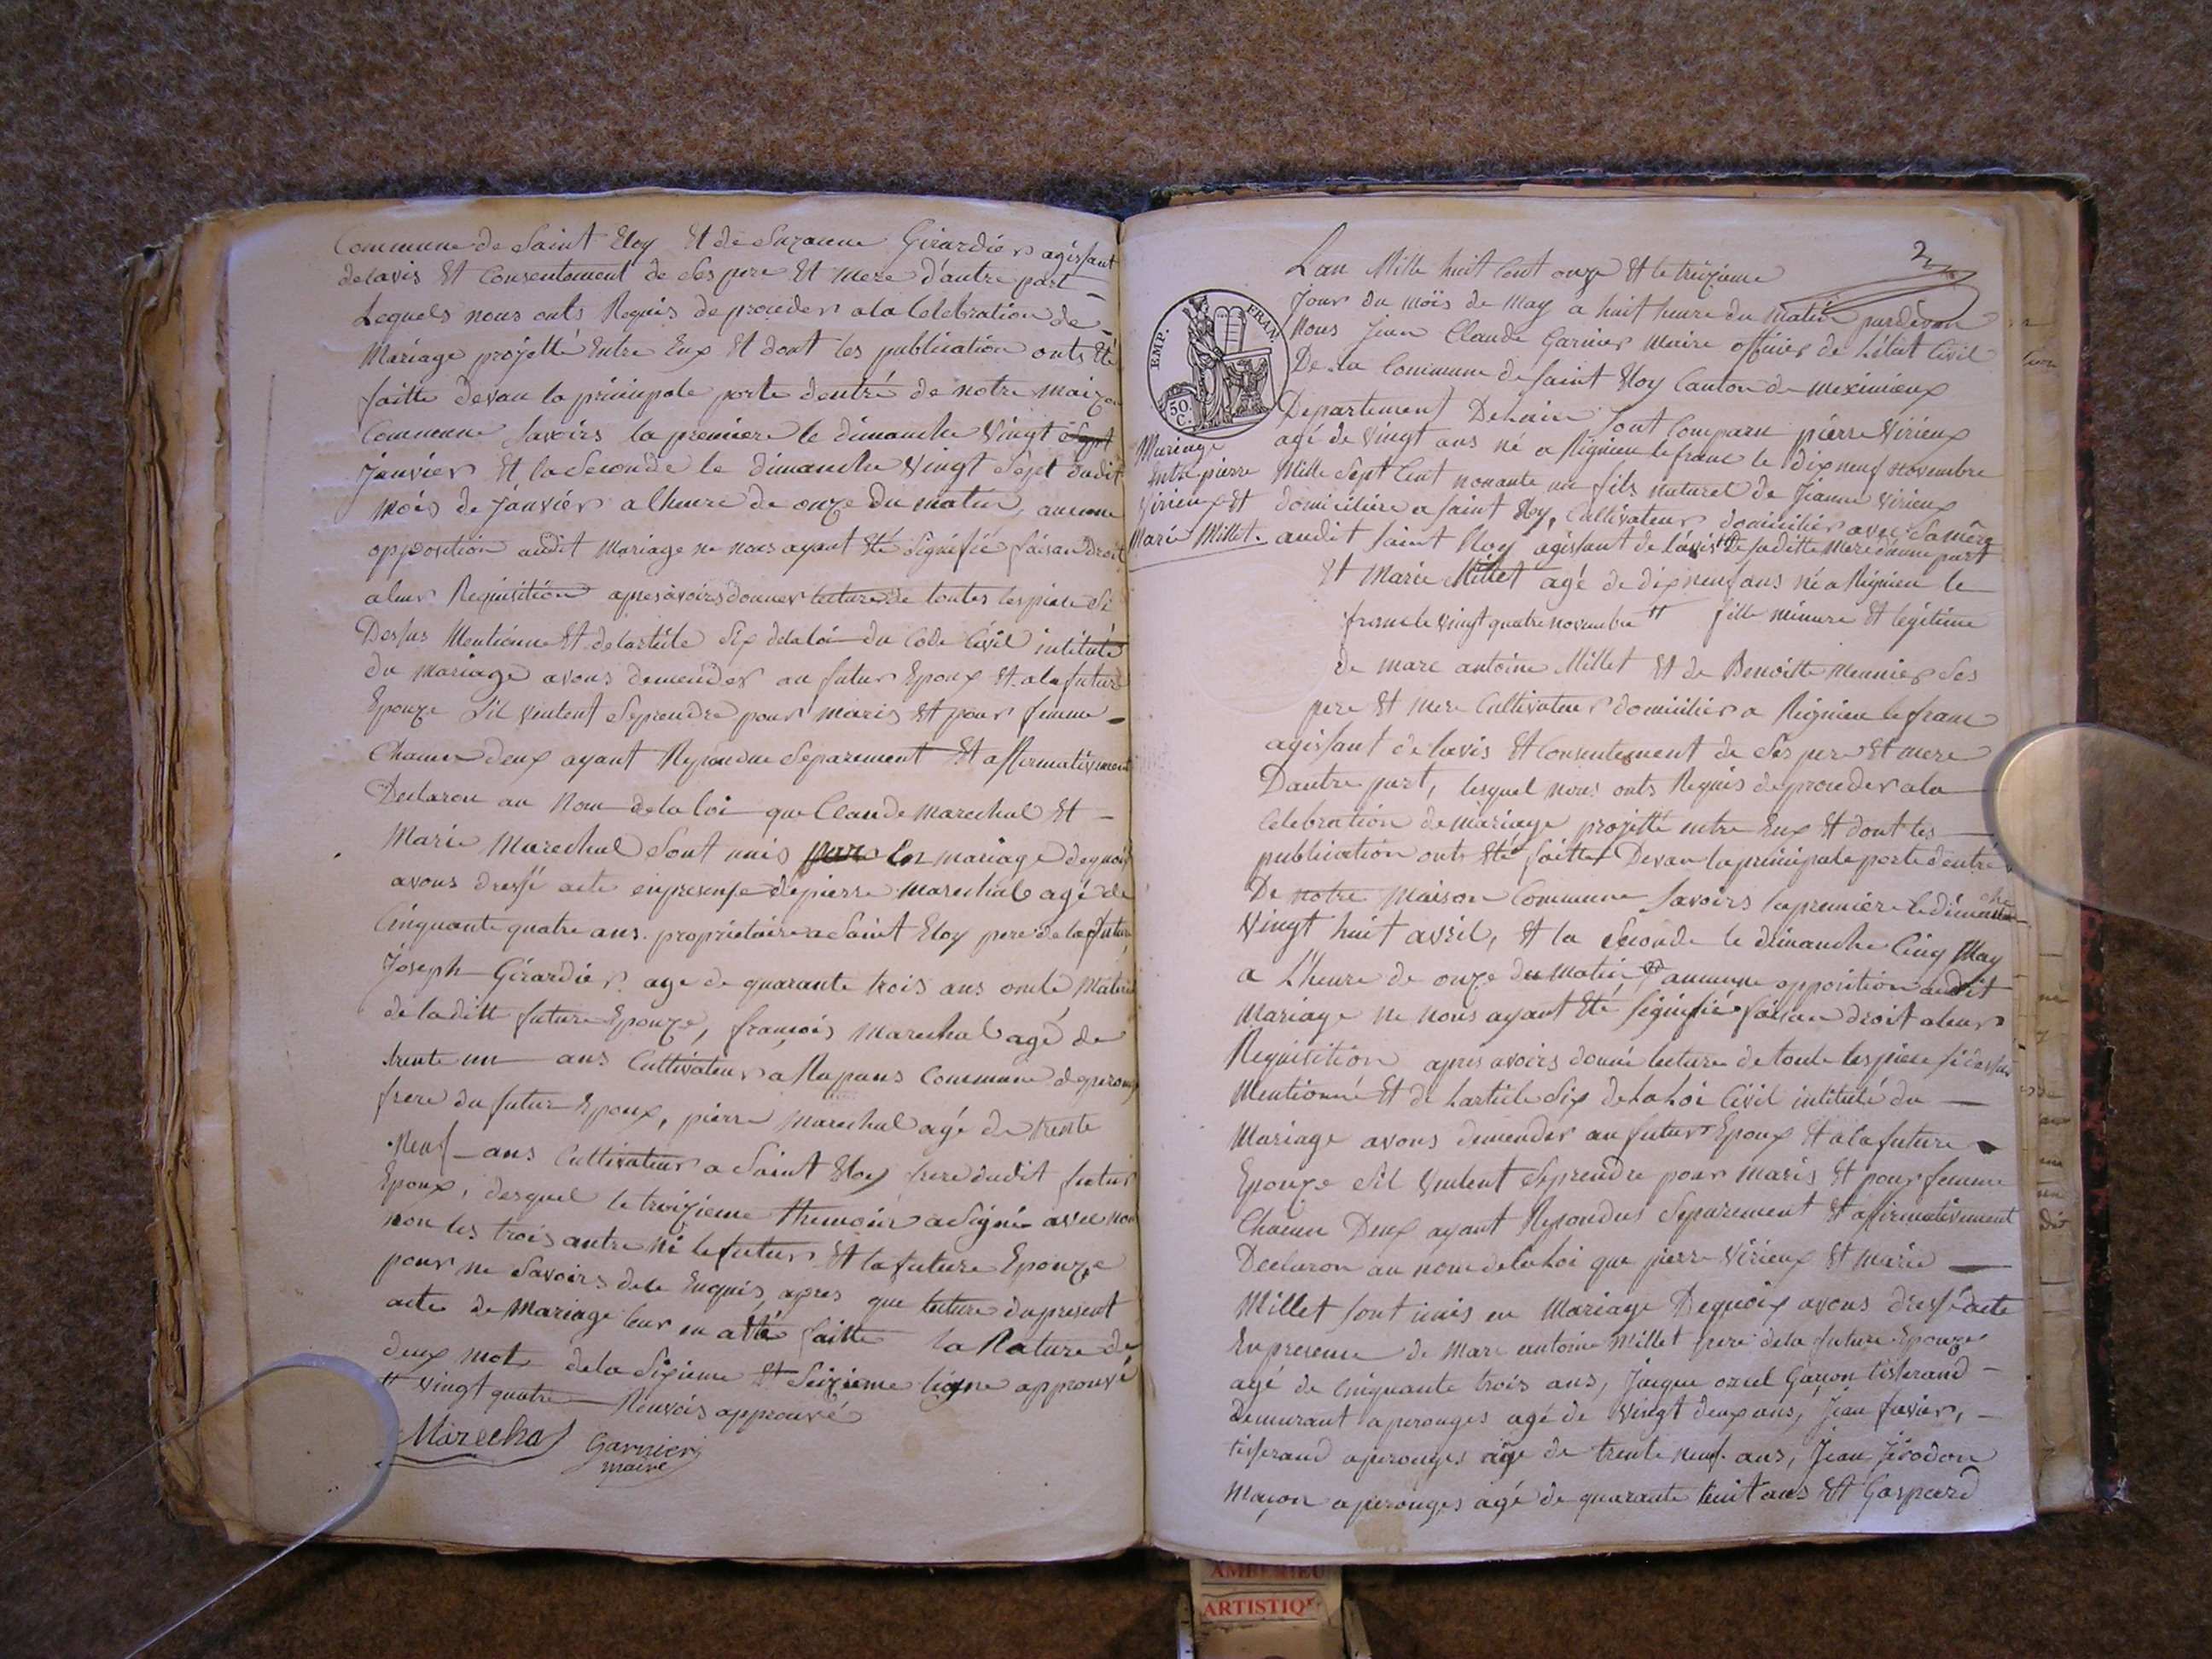 Commune de Saint Eloy Et de Suzanne Girardier agissant
delavis Et Consentement de Ses pere Et mere d'autre part
Lequels nous onts Requis de proceder ala Celebration de
Mariage projetté Entre Eux Et dont les publication onts Eté
faitte devan la principale porte dentré de notre maizon
Commune Savoirs la premiere le dimanche Vingt Sept
Janvier Et la Seconde le dimanche Vingt Sept dudit
mois de Janvier a lheure de onze du matin, aucune
opposition audit Mariage ne nous ayant Eté Signifié faisan Droit
aleur Requisition apres avoirs donner lecture de toutes les piece Si
Dessus Mentionne Et de larticle Six dela loi du Code Civil intitulé
du mariage avons demender au futur Epoux Et ala future
Epouze Sil veulent Seprendre pour maris Et pour femme
Chacun deux ayant Repondue Separement Et affirmativement
Declaron au Nom dela loi que Claude marechal Et
Marie Marechal Sont unis pour En mariage dequoi
avons dressé acte enpresense depierre marechal agé de
Cinquante quatre ans. propriétaire a Saint Eloy pere de la future
Joseph Girardier. age de quarante trois ans oncle Maternel
de laditte future Epouze, françois marechal agé de
trente un ans Cultivateur a Rapans Commune de perouges
frere du futur Epoux, pierre marechal agé de trente
Neuf ans Cultivateur a Saint Eloy frere dudit futur
Epoux, desquel le troizieme themoin a Signé avec nous
non les trois autre ni le futur Et la future Epouze
pour ne Savoirs dele Enquis, apres que lecture du present
acte de Mariage leur en a Eté faitte la Rature de
deux mot dela Sixieme Et Seizieme ligne approuvé
Vingt quatre Renvois approuvé
Marechal Garnier
maire
2
Lan Mille huit Cent onze Et le treizieme
Jour du mois de May a huit heure du matin pardevan
Nous Jean Claude Garnier Maire officier de Létat Civil
De la Commune de Saint Eloy Canton de meximieux
Departement De Lain Sont Comparu pierre Virieux
agé de Vingt ans né a Rignieu le franc le dix neuf Novembre
Mille Sept Cent nonante un fils naturel de Jeanne Virieux
domiciliere a Saint Eloy, Cultivateur domicilier avec Samère
audit Saint Eloy agissant de l'avis De saditte Mere d'une part
EMP. FRAN.
50 C.
Mariage
Entre pierre
Virieux Et
Marie Millet.
Et Marie Millet agé de dix neuf ans né a Rignieu le
franc le vingt quatre novembre fille mineure Et légitime
de marc antoine Millet Et de Benoitte Meunier Ses
pere Et mere Cultivateur domicilier a Rignieu le franc
agissant de lavis Et Consentement de Ses pere Et mere
Dautre part, lesquel nous onts Requis de proceder ala
Celebration de mariage projetté entre Eux Et dont les
publication onts Eté faittes Devan la principale porte dentré
De notre Maison Commune Savoirs la premiere le dimanche
Vingt huit avril, Et la Seconde le dimanche Cinq May
a L'heure de onze du matin aucune opposition audit
Mariage ne nous ayant Eté Signifié faisan droit aleur
Requisition apres avoirs donné lecture de toute les piece Si dessus
Mentionné Et de Larticle Six De la Loi Civil intitulé du
Mariage avons demender au futur Epoux Et ala future
Epouze Sil veulent Seprendre pour maris Et pour femme
Chacun Deux ayant Repondus Separement Et affirmativement
Declaron au nom dela Loi que pierre Virieux Et marie
Millet Sont unis en Mariage Dequoix avons dressé acte
En presence de Marc antoine Millet pere dela future Epouze
agé de Cinquante trois ans, Jacque ozuel Garçon tisserand
Demurant a perouges agé de Vingt deux ans, Jean favier,
tisserand a perouges âge de trente neuf ans, Jean Jérodon
Maçon a perouges agé de quarante huit ans Et Gaspard
AMBERIEU
ARTISTIQ